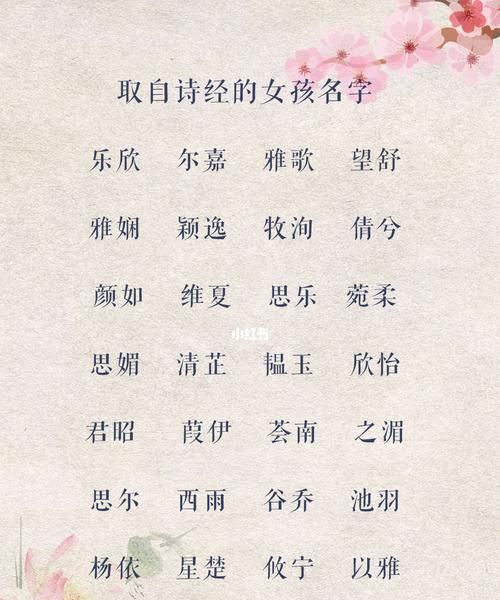 取自诗经的女孩名字
乐欣 尔嘉 雅歌 望舒
雅娴 颖逸 牧洵 倩兮
颜如 维夏 思乐 菀柔
小红书
思媚 清芷 韫玉 欣怡
君昭 葭伊 荟南 之湄
思尔 西雨 谷乔 池羽
杨依 星楚 攸宁 以雅